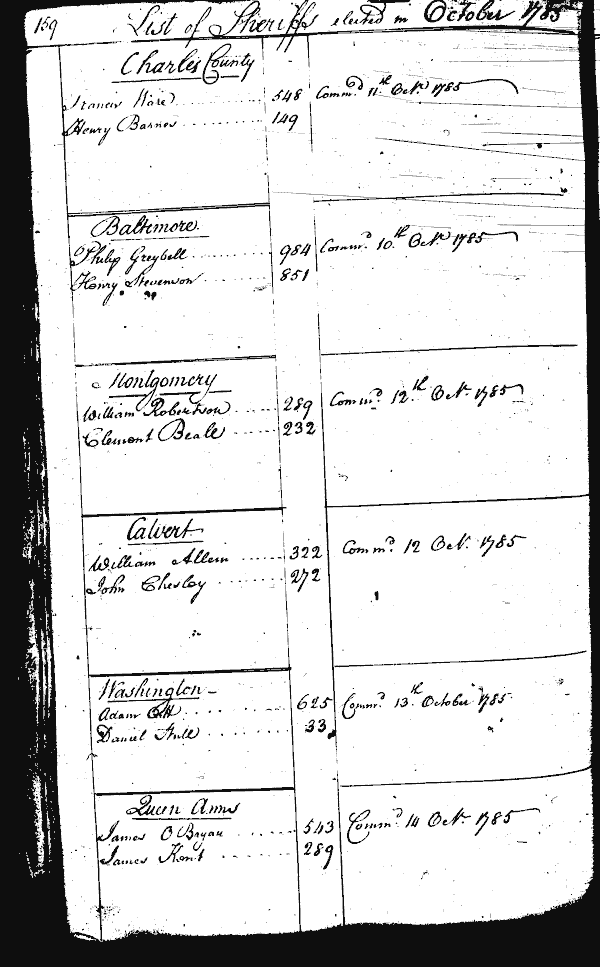 159 List of Sheriffs elected in October 1785
Charles County
Francis Ware 548 Commd. 11th Octr. 1785
Henry Barnes 149
Baltimore
Philip Greybell 984 Commd. 10th Octr. 1785
Henry Stevenson 851
Montgomery
William Robertson 289 Commd. 12th Octr. 1785
Clement Beall 232
Calvert
William Allein 322 Commd. 12 Octr. 1785
John Chesley 272
Washington
Adam Ott 625 Commd. 13th October 1785
Daniel Hull 33
Queen Anns
James O Bryan 543 Commd. 14 Octr. 1785
James Kent 289